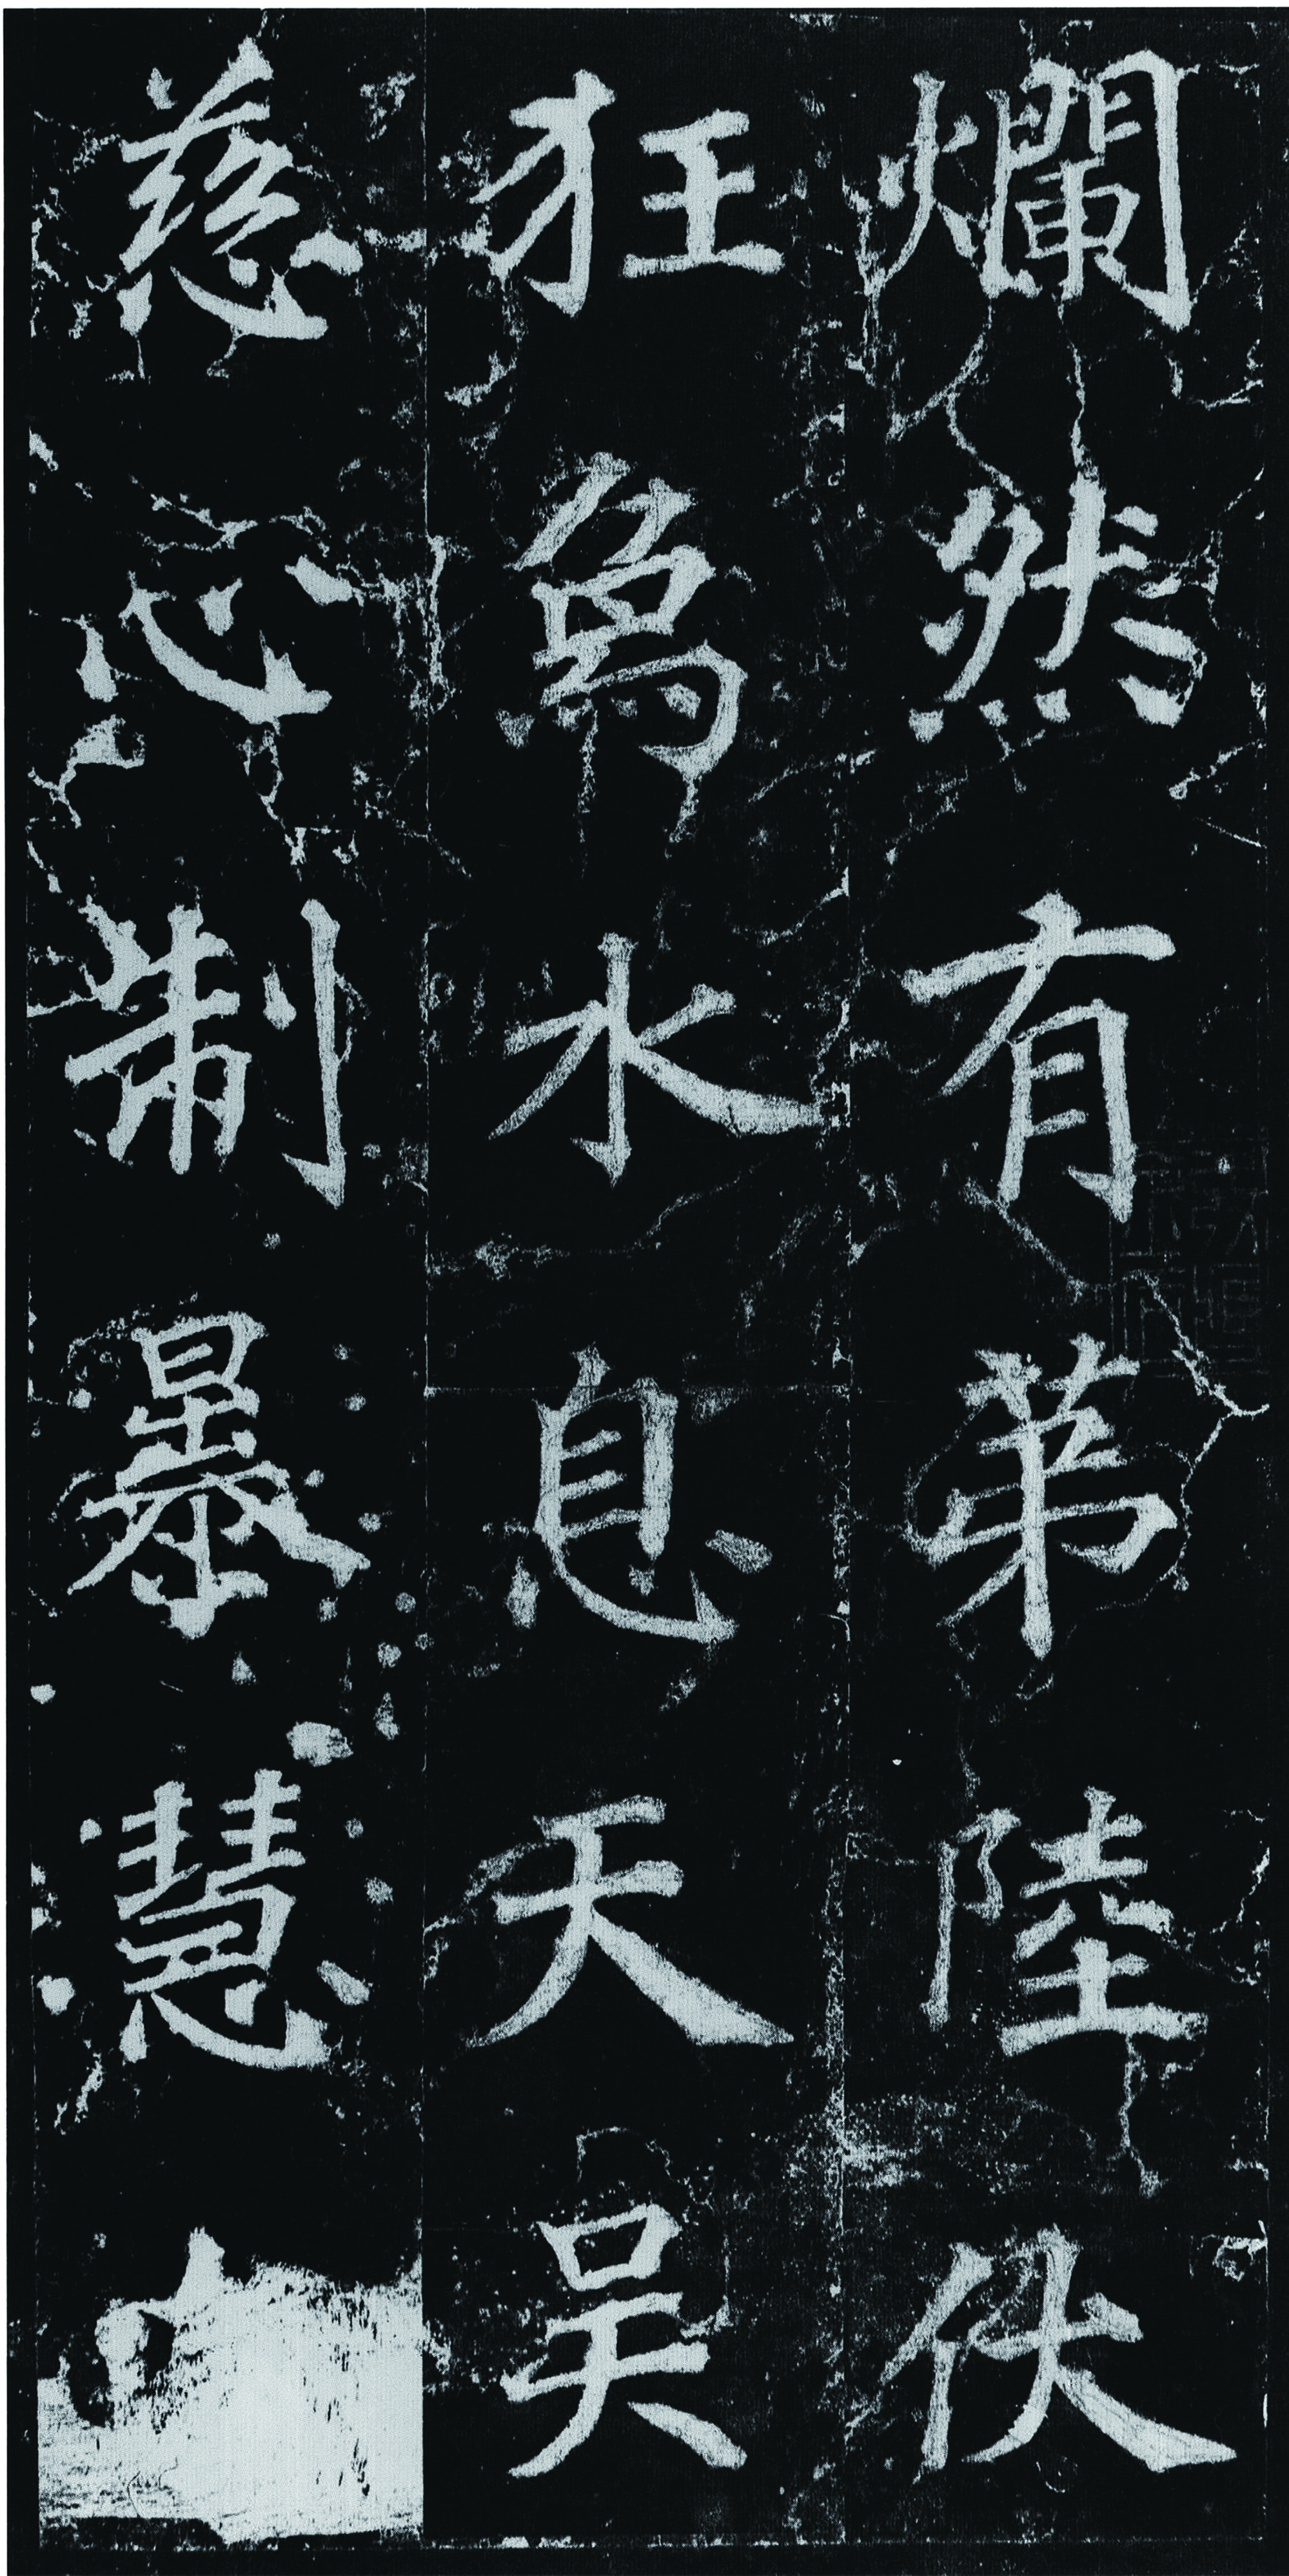 爛然有第陸伏
狂爲水息天吴
慈心制暴慧